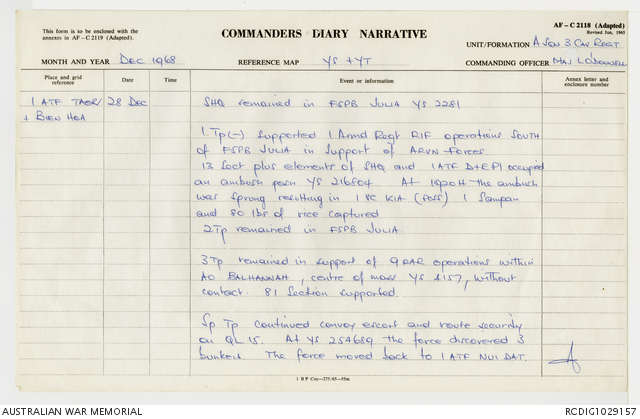 This form is to be enclosed with the
annexes in AF—C 2119 (Adapted).
COMMANDERS DIARY NARRATIVE
AF—C 2118 (Adapted)
Revised Jun, 1965
UNIT/FORMATION A SQN 3 CAV REGT
MONTH AND YEAR DEC 1968
REFERENCE MAP YS + YT
COMMANDING OFFICER MAJ L O'DONNELL
Place and grid
reference
Date
Time
Event or information
Annex letter and
enclosure number
1 ATF TAOR/ 28 Dec SHQ remained in FSPB JULIA YS 2281
+ BIEN HOA
1 Tp(-) supported 1 Armd Regt RIF operations SOUTH
of FSPB JULIA in support of ARVN Forces
13 Sect plus elements of SHQ and 1 ATF D+E Pl occupied
an ambush posn YS 216804. At 1920H the ambush
was sprung resulting in 1 VC KIA (poss) 1 Sampan
and 80 lbs of rice captured
2 Tp remained in FSPB JULIA
3 Tp remained in support of 9 RAR operations within
AO BALHANNAH, centre of mass YS 2157, without
contact. 81 Section supported.
Sp Tp continued convoy escort and route security
on QL 15. At YS 254689 the force discovered 3
bunkers. The force moved back to 1 ATF NUI DAT.
AUSTRALIAN WAR MEMORIAL
RCDIG1029157